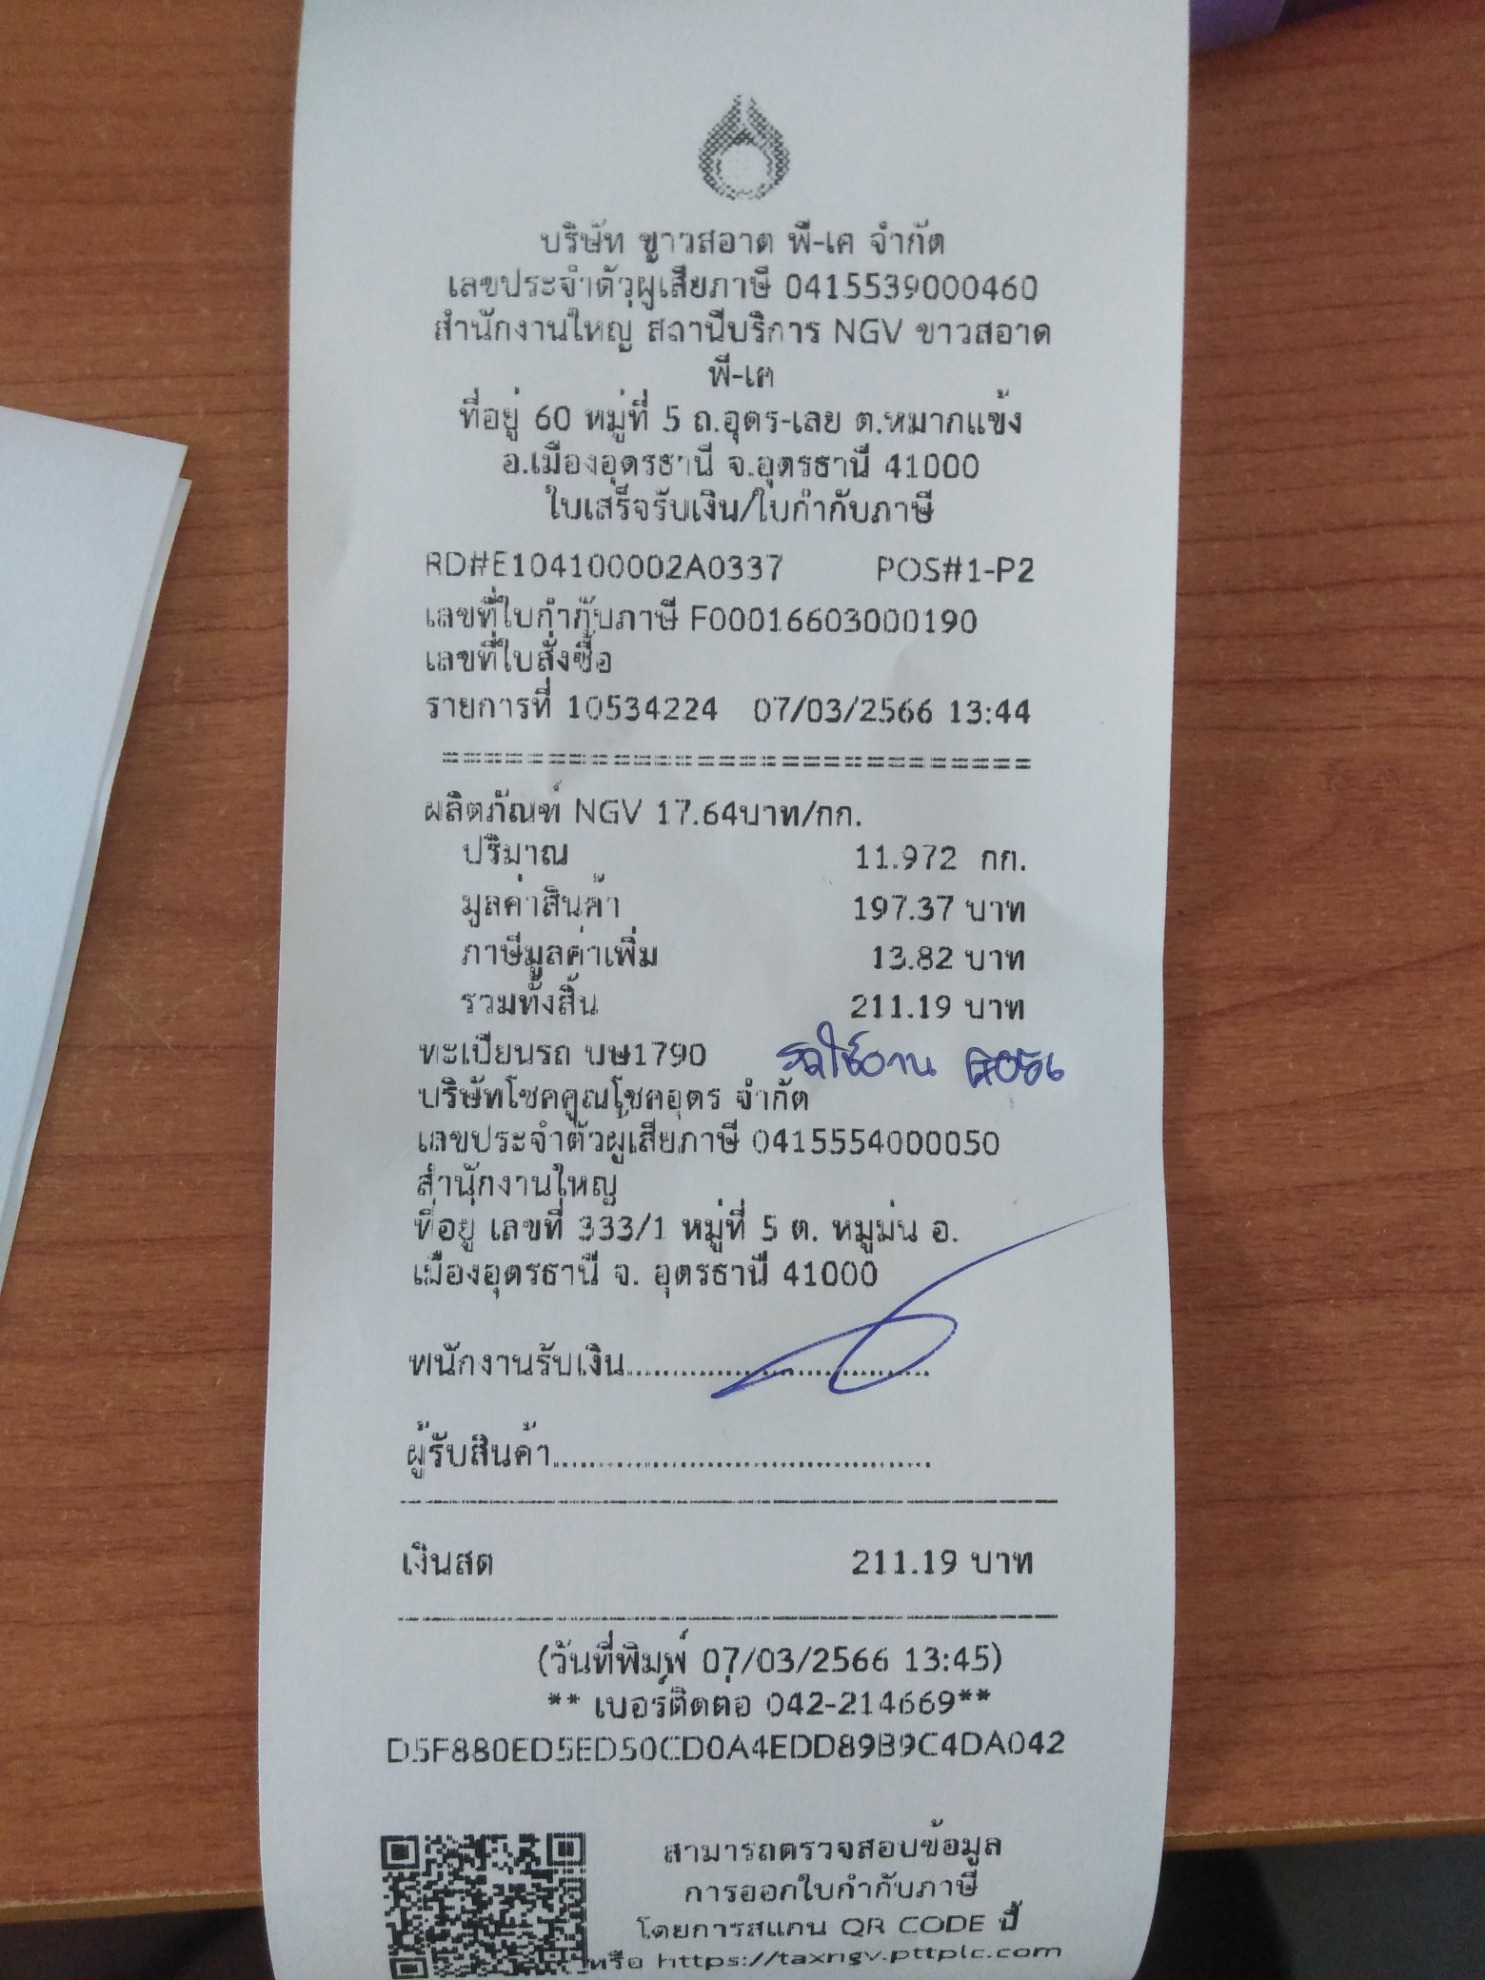 บริษัท ขาวสอาด พี-เค จำกัด
เลขประจำตัวผู้เสียภาษี 0415539000460
สำนักงานใหญ่ สถานีบริการ NGV ขาวสอาด
พี-เค
ที่อยู่ 60 หมู่ที่ 5 ถ.อุดร-เลย ต.หมากแข้ง
อ.เมืองอุดรธานี จ.อุดรธานี 41000
ใบเสร็จรับเงิน/ใบกำกับภาษี
RD#E104100002A0337 POS#1-P2
เลขที่ใบกำกับภาษี F00016603000190
เลขที่ใบสั่งซื้อ
รายการที่ 10534224 07/03/2566 13:44
============================
ผลิตภัณฑ์ NGV 17.64บาท/กก.
ปริมาณ 11.972 กก.
มูลค่าสินค้า 197.37 บาท
ภาษีมูลค่าเพิ่ม 13.82 บาท
รวมทั้งสิ้น 211.19 บาท
ทะเบียนรถ บษ1790 รถใช้งาน
บริษัทโชคคูณโชคอุดร จำกัด
เลขประจำตัวผู้เสียภาษี 0415554000050
สำนักงานใหญ่
ที่อยู่ เลขที่ 333/1 หมู่ที่ 5 ต. หมูม่น อ.
เมืองอุดรธานี จ. อุดรธานี 41000
พนักงานรับเงิน..............................
ผู้รับสินค้า......................................
เงินสด 211.19 บาท
(วันที่พิมพ์ 07/03/2566 13:45)
** เบอร์ติดต่อ 042-214669**
D5F880ED5ED50CD0A4EDD89B9C4DA042
สามารถตรวจสอบข้อมูล
การออกใบกำกับภาษี
โดยการสแกน QR CODE นี้
หรือ https://taxngv.pttplc.com